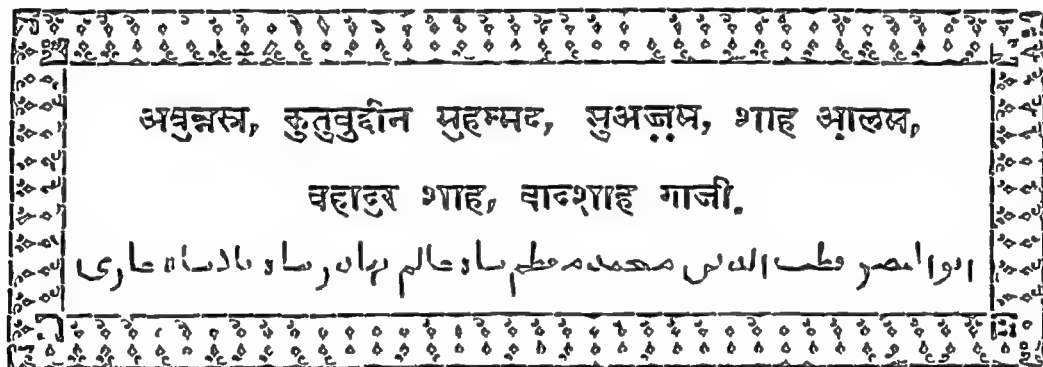 अबुन्नस्र, कुतुबुद्दीन मुहम्मद, मुअज़्ज़म, शाह आ़लम,
बहादुर शाह, बादशाह गाजी.
ابوالنصر قطب الدین محمد معظم شاه عالم بهادر شاه بادشاه غازی